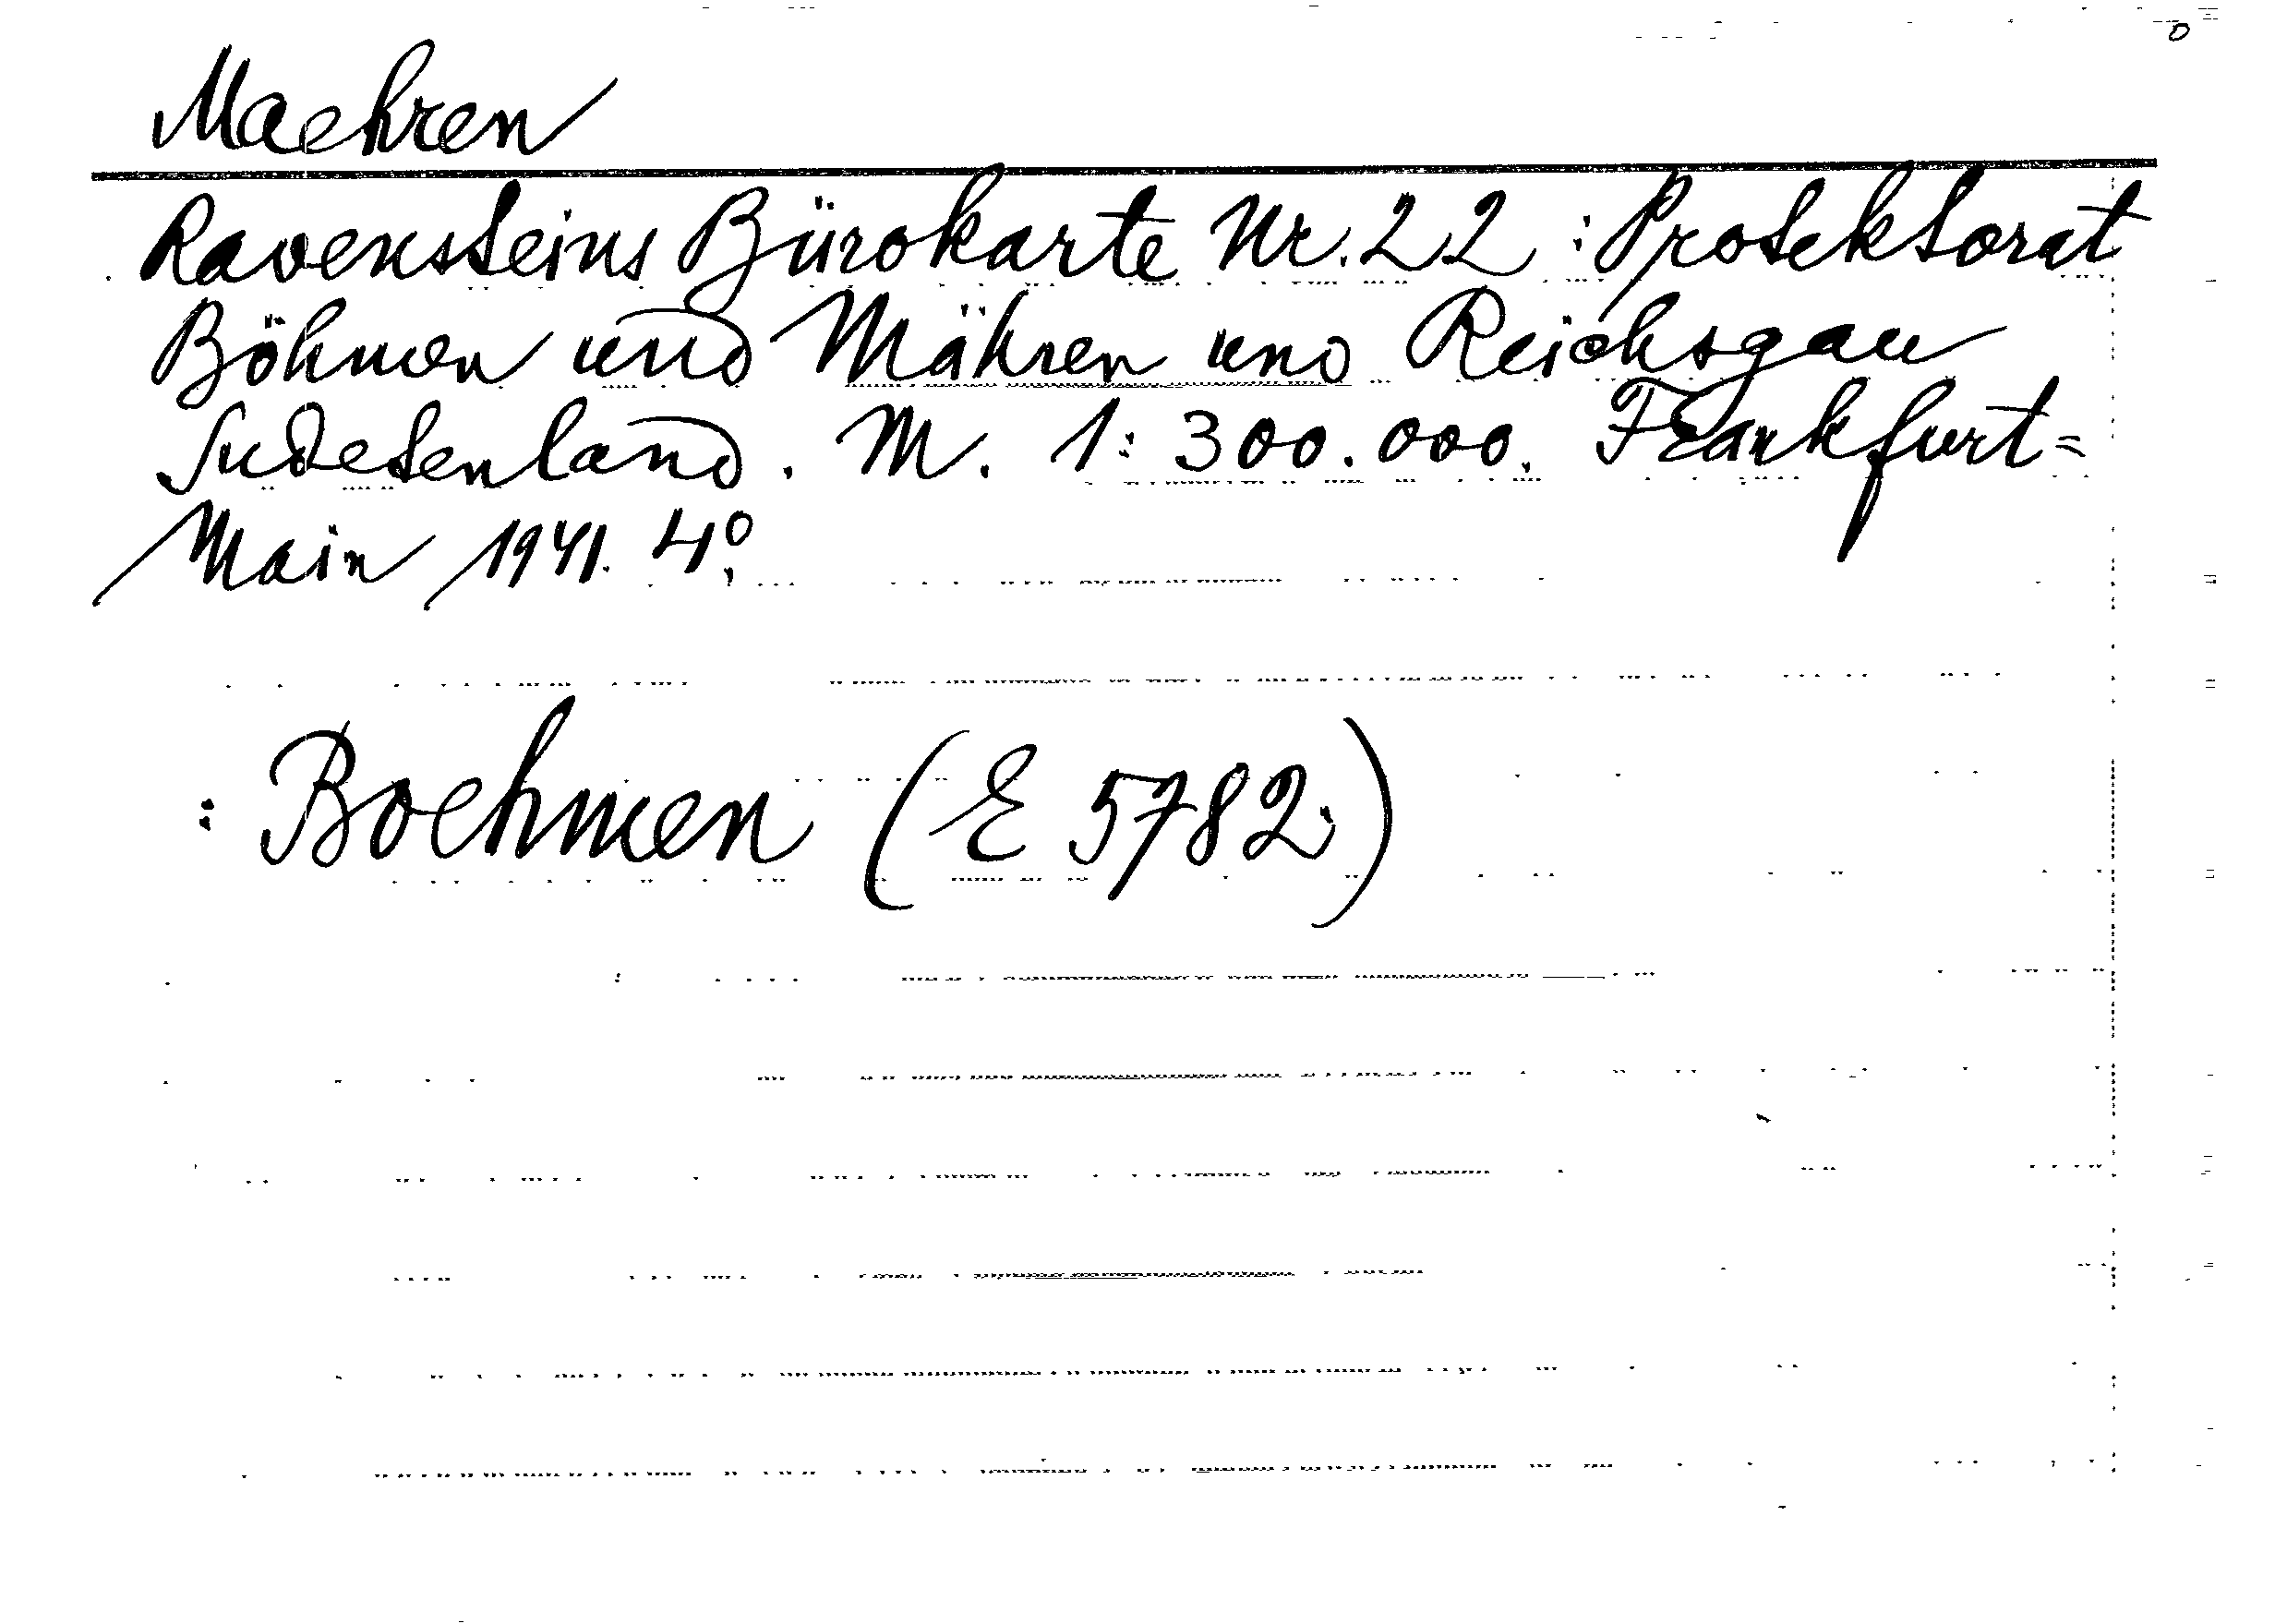 Maehren
Ravensteins Bürokarte Nr. 22 : Protektorat
Böhmen und Mähren und Reichsgau
Sudetenland. M. 1:300.000. Frankfurt=
Main 1941. 4°.
: Boehmen (E 5782.)